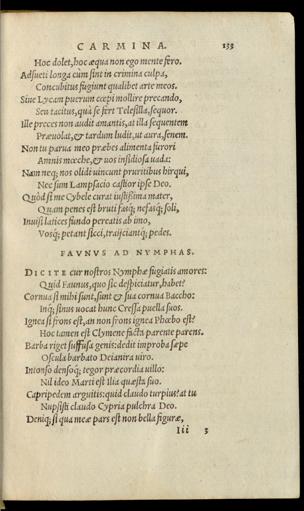 CARMINA. 133
Hoc dolet, hoc æqua non ego mente fero.
Adsueti longa cùm sint in crimina culpa,
Concubitus fugiunt qualibet arte meos.
Siue Lycam puerum cœpi mollire precando,
Seu tacitus, quà se fert Telesilla, sequor.
Ille preces non audit amantis, at illa sequentem
Præuolat, & tardum ludit, ut aura, senem.
Non tu parua meo præbes alimenta furori
Amnis mœche, & uos insidiosa uada:
Nam neq; nos olidi uincunt pruritibus hirqui,
Nec sum Lampsacio castior ipse Deo.
Quòd si me Cybele curat iustissima mater,
Quam penes est bruti fasq; nefasq; soli,
Inuisi latices fundo pereatis ab imo,
Vosq; petant sicci, traijciantq; pedes.
FAVNVS AD NYMPHAS.
DICITE cur nostros Nymphæ fugiatis amores:
Quid Faunus, quo sic despiciatur, habet?
Cornua si mihi sunt, sunt & sua cornua Baccho:
Inq; sinus uocat hunc Cressa puella suos.
Ignea si frons est, an non frons ignea Phœbo est?
Hoc tamen est Clymene facta parente parens.
Barba riget suffusa genis: dedit improba sæpe
Oscula barbato Deianira uiro.
Intonso densoq; tegor præcordia uillo:
Nil ideo Marti est Ilia questa suo.
Capripedem arguitis: quid claudo turpius? at tu
Nupsisti claudo Cypria pulchra Deo.
Deniq; si qua meæ pars est non bella figuræ,
Iii 3